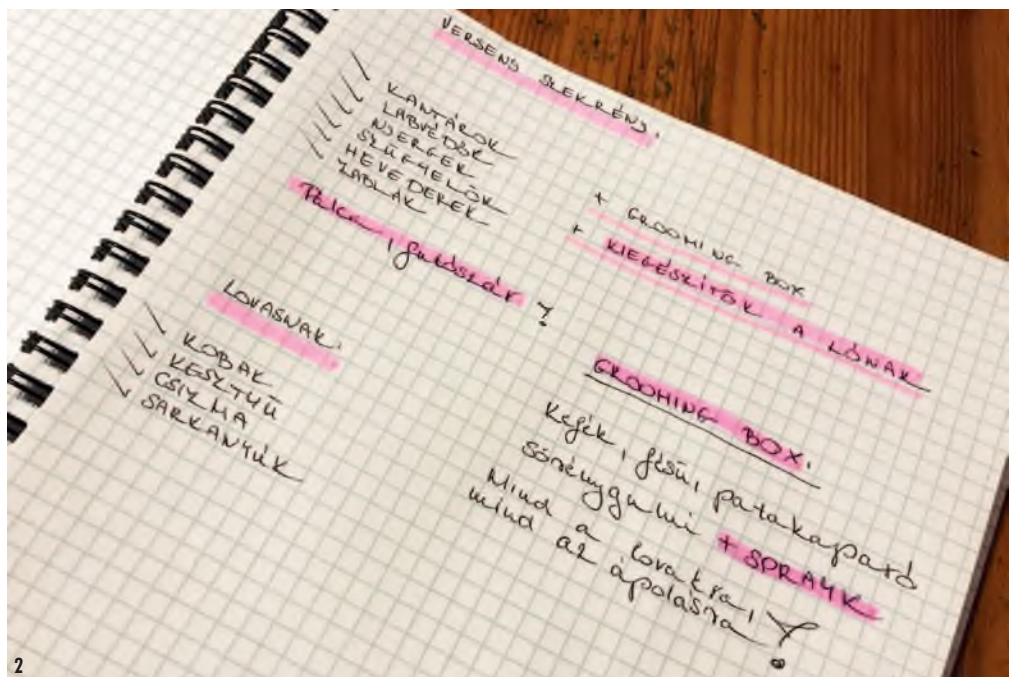 VERSENY SZEKRÉNY.
KANTÁROK
LÁBVÉDŐK
NYERGEK
SZÜGYELŐK
HEVEDEREK
ZABLÁK
Pálca, futószár ?
+ GROOMING BOX
+ KIEGÉSZÍTŐK A LÓNAK
LOVASNAK:
KOBAK
KESZTYŰ
CSIZMA
SARKANYÚK
GROOMING BOX.
Kefék, fésű, patakaparó
sörénygumi + SPRAYK
Mind a lovakra,
mind az ápolásra !
2